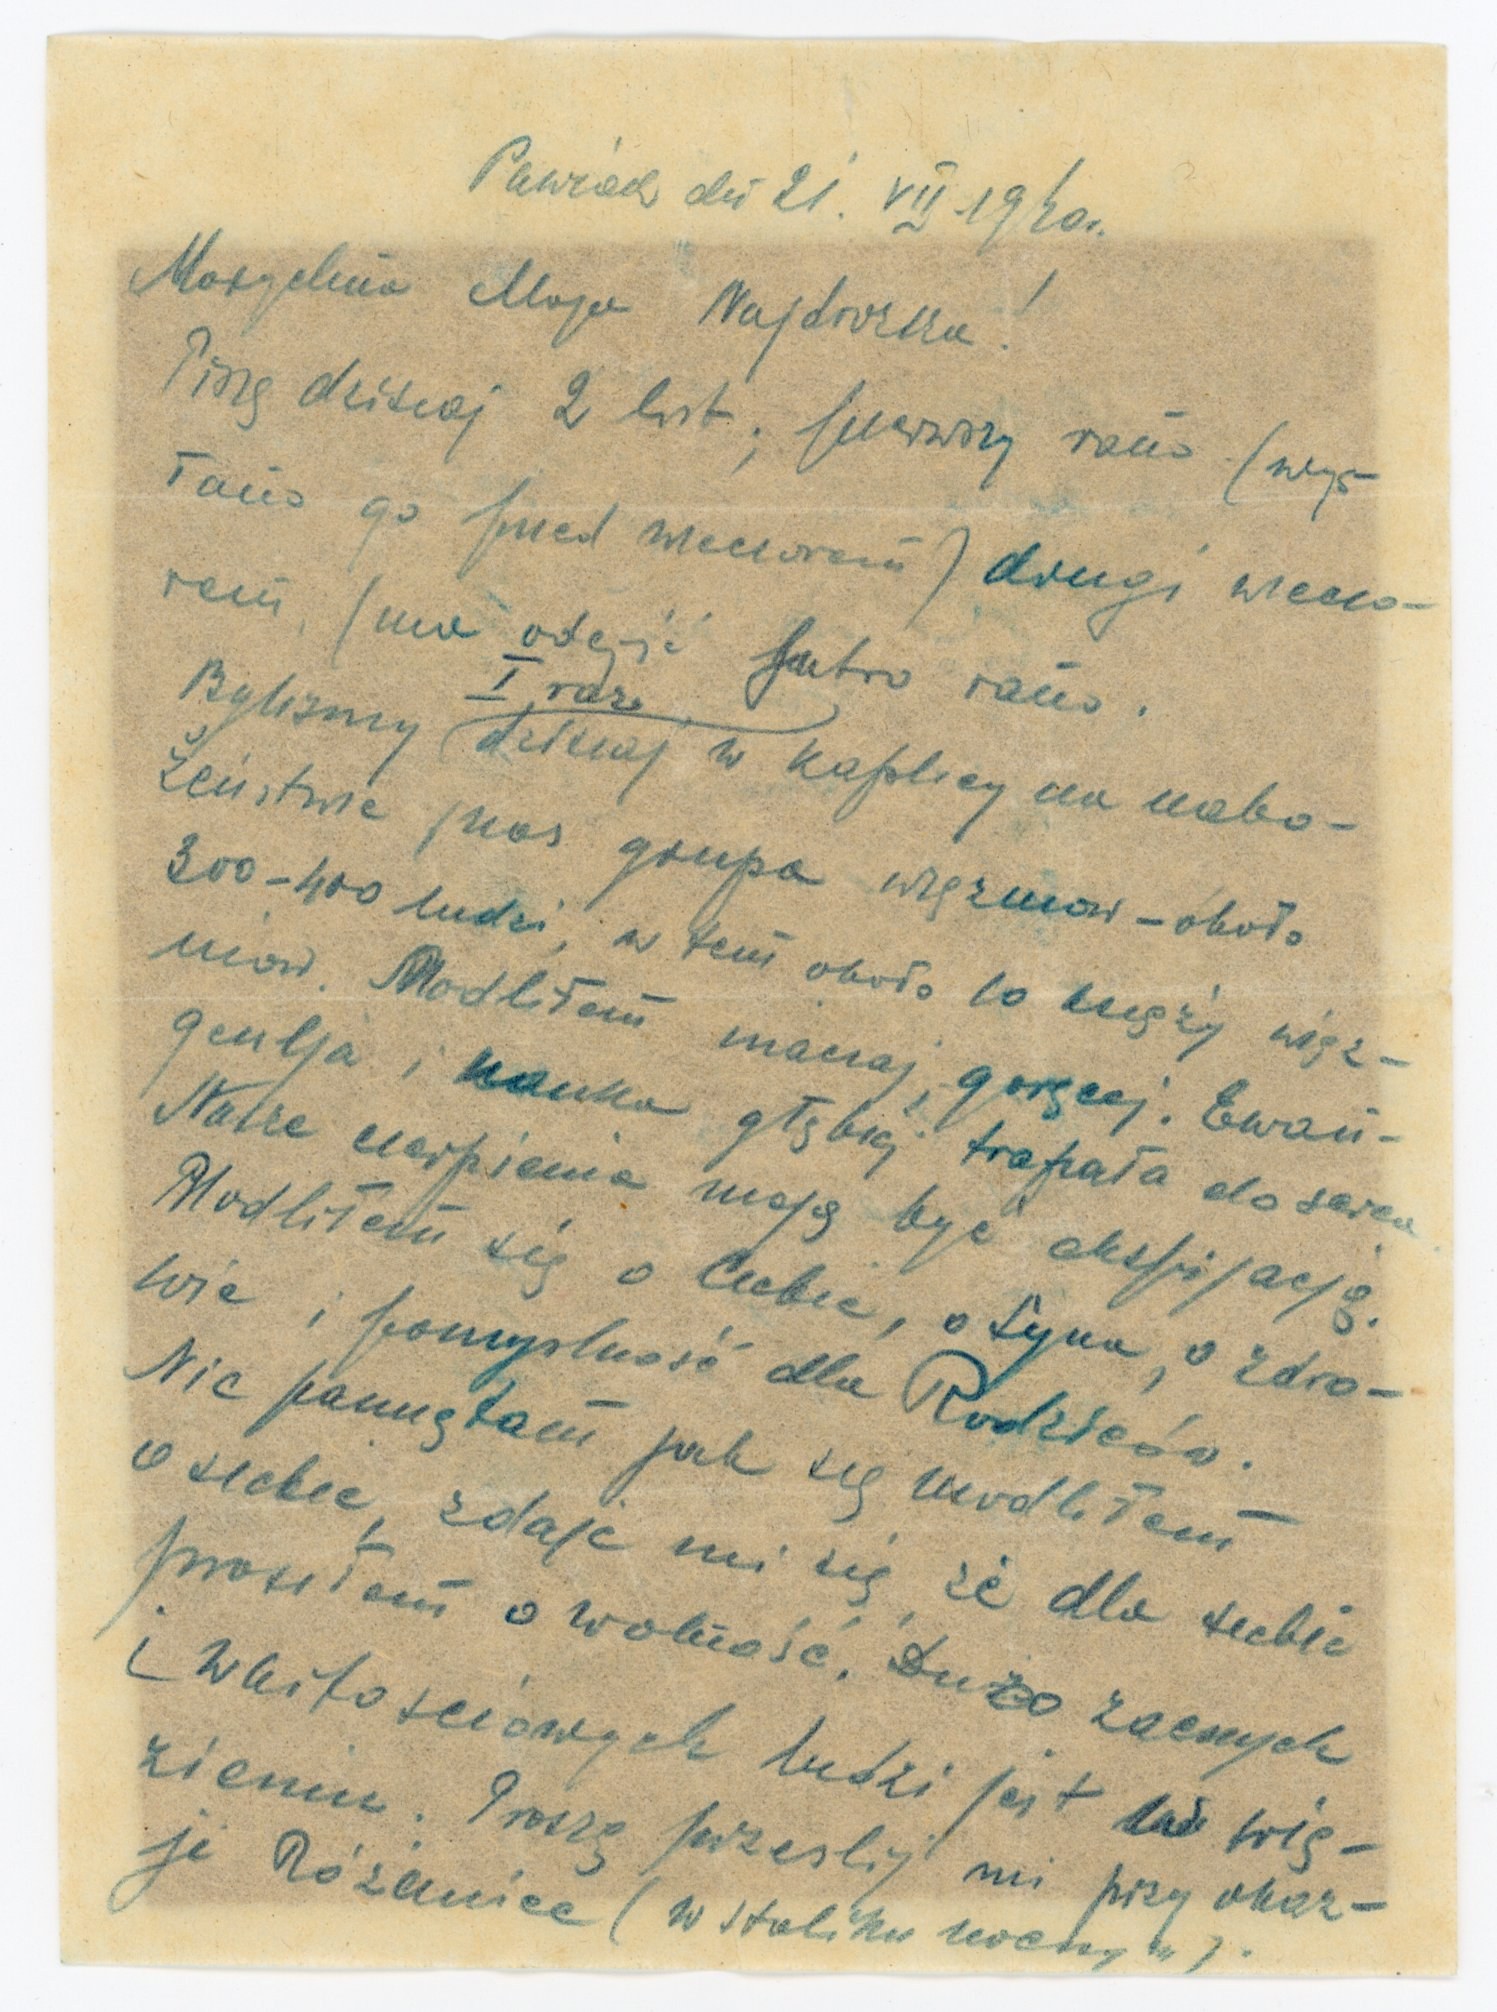 Pawiak dn 21. VII 1940r.
Marychna Moja Najdroższa!
Piszę dzisiaj 2 list; pierwszy rano (wys-
łano go przed wieczorem) drugi wieczo-
rem, (ma odejść jutro rano.
Byliśmy I raz dzisiaj w kaplicy na nabo-
żeństwie jnas grupa więźniow – około
300-400 ludzi, w tem około 10 księży więź-
niow. Modliłem inaczaj, goręcej. Ewan-
gelja i nauka głębiej trafiała do serca.
Nasze cierpienia mają być ekspijacją.
Modliłem się o Ciebie, o Syna, o zdro-
wie i pomyslność dla Rodziców.
Nie pamiętam jak się modliłem
o siebie, zdaje mi się, że dla siebie
prosiłem o wolność. Dużo zacnych
i wartościowych ludzi jest we wię-
zieniu. Proszę prześlij mi przy okaz-
ji Różaniec (w stoliku nocnym).